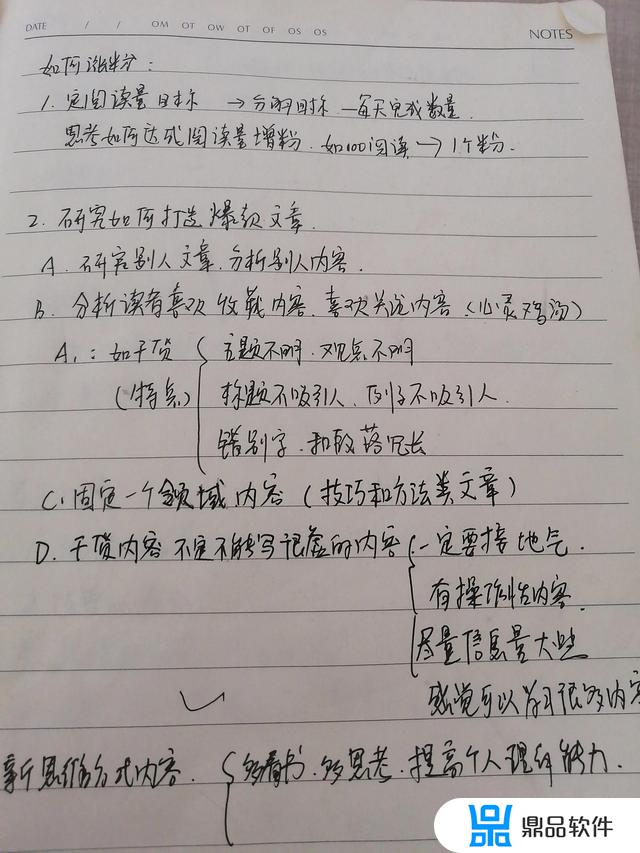 DATE / / OM OT OW OT OF OS OS NOTES
如何涨粉：
1. 定阅读量目标 → 分解目标 每天完成数量.
思考如何达成阅读量增粉. 如100阅读 → 1个粉.
2. 研究如何打造爆款文章.
A. 研究别人文章. 分析别人内容.
B. 分析读者喜欢收藏内容. 喜欢关注内容（心灵鸡汤）
A₁：如干货 主题不明. 观点不明
（特点） 标题不吸引人、例子不吸引人.
错别字. 和段落冗长
C. 固定一个领域内容（技巧和方法类文章）
D. 干货内容 不定不能写很虚的内容 一定要接地气.
有操作性内容.
尽量信息量大些
感觉可以学习很多内容
新思维方式内容. 多看书. 多思考. 提高个人理解能力.
鼎品软件